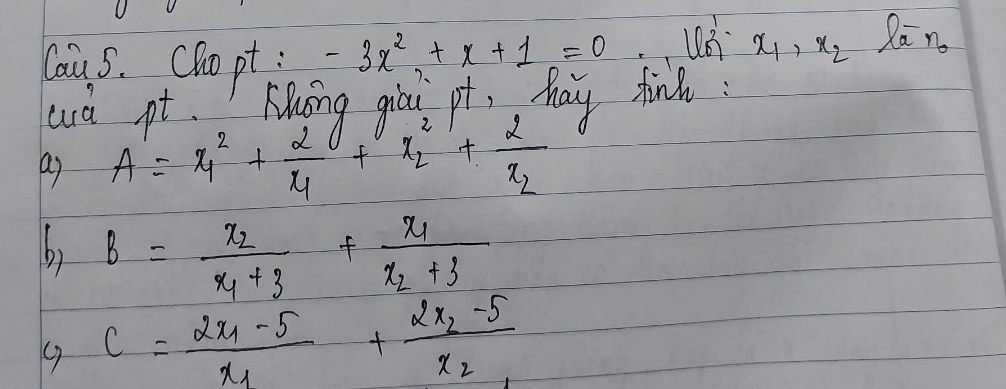 Câu 5. Cho pt : -3x² + x + 1 = 0. Với x₁, x₂ là n₀
của pt. Không giải pt, hãy tính :
a) A = x₁² + 2/x₁ + x₂² + 2/x₂
b) B = x₂/(x₁ + 3) + x₁/(x₂ + 3)
c) C = (2x₁ - 5)/x₁ + (2x₂ - 5)/x₂